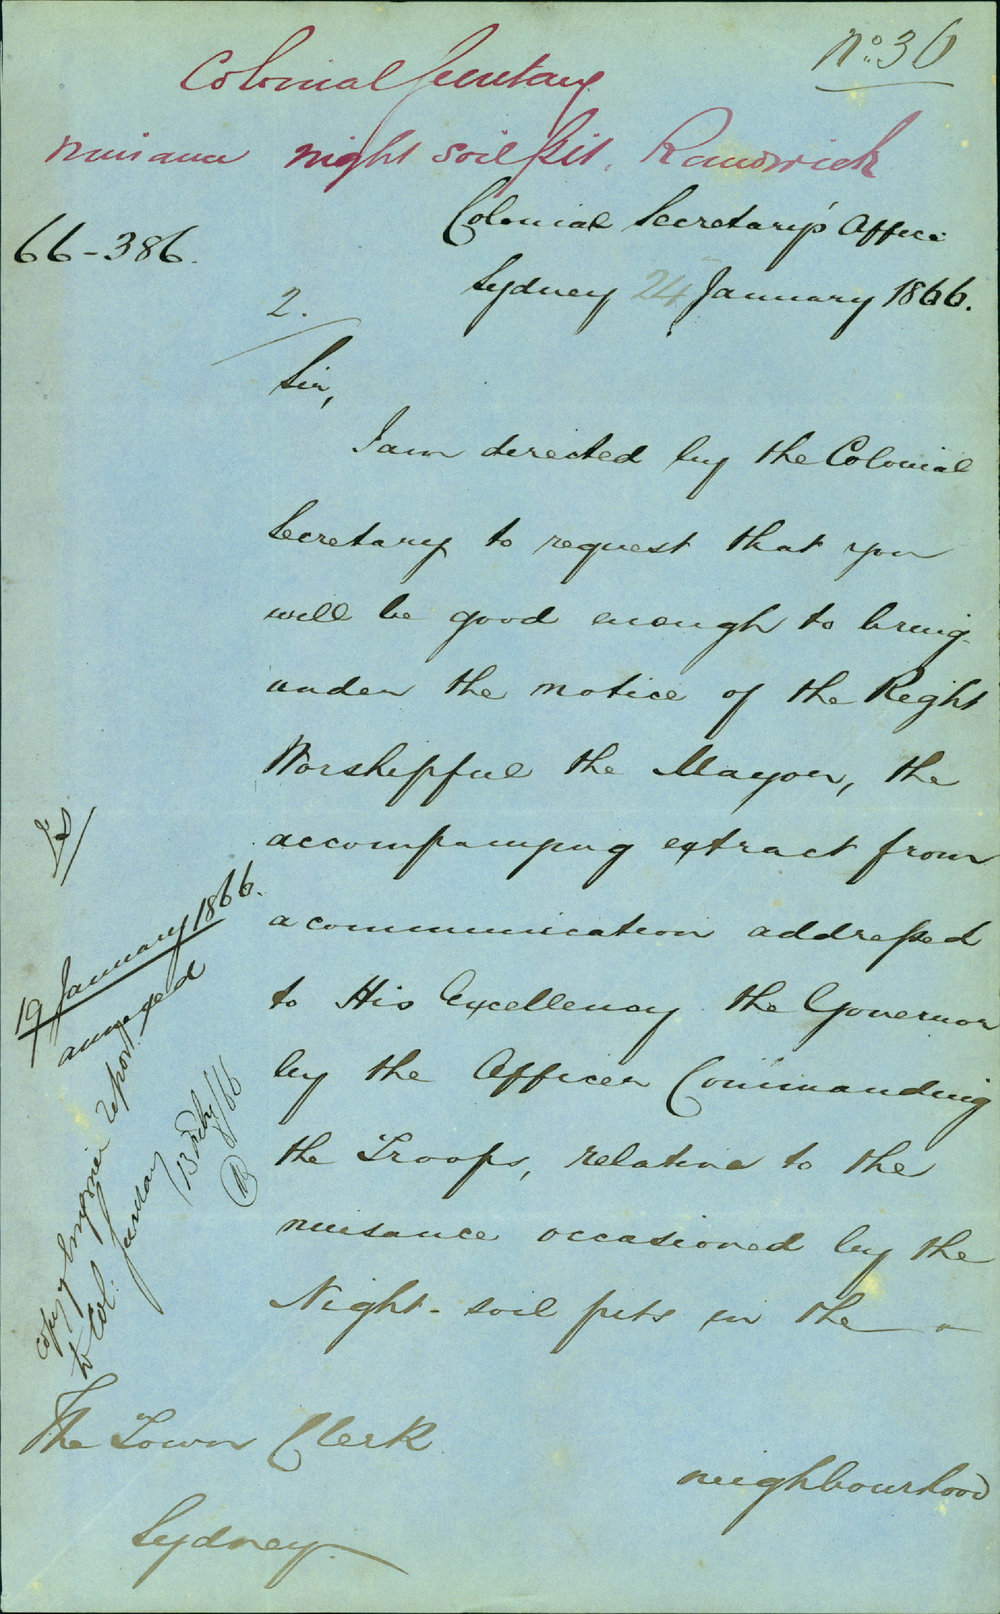 No. 36
Colonial Secretary
nuisance night soil pit. Randwick
Colonial Secretary's Office
66-386.
Sydney 24 January 1866.
2.
Sir,
I am directed by the Colonial
Secretary to request that you
will be good enough to bring
under the notice of the Right
Worshipful the Mayor, the
accompanying extract from
a communication addressed
to His Excellency the Governor
by the Officer Commanding
the Troops, relative to the
nuisance occasioned by the
Night-soil pits in the
neighbourhood
The Town Clerk
Sydney.
19 January 1866.
annexed
copy of Engineer report
to Col:
13 Feby/66